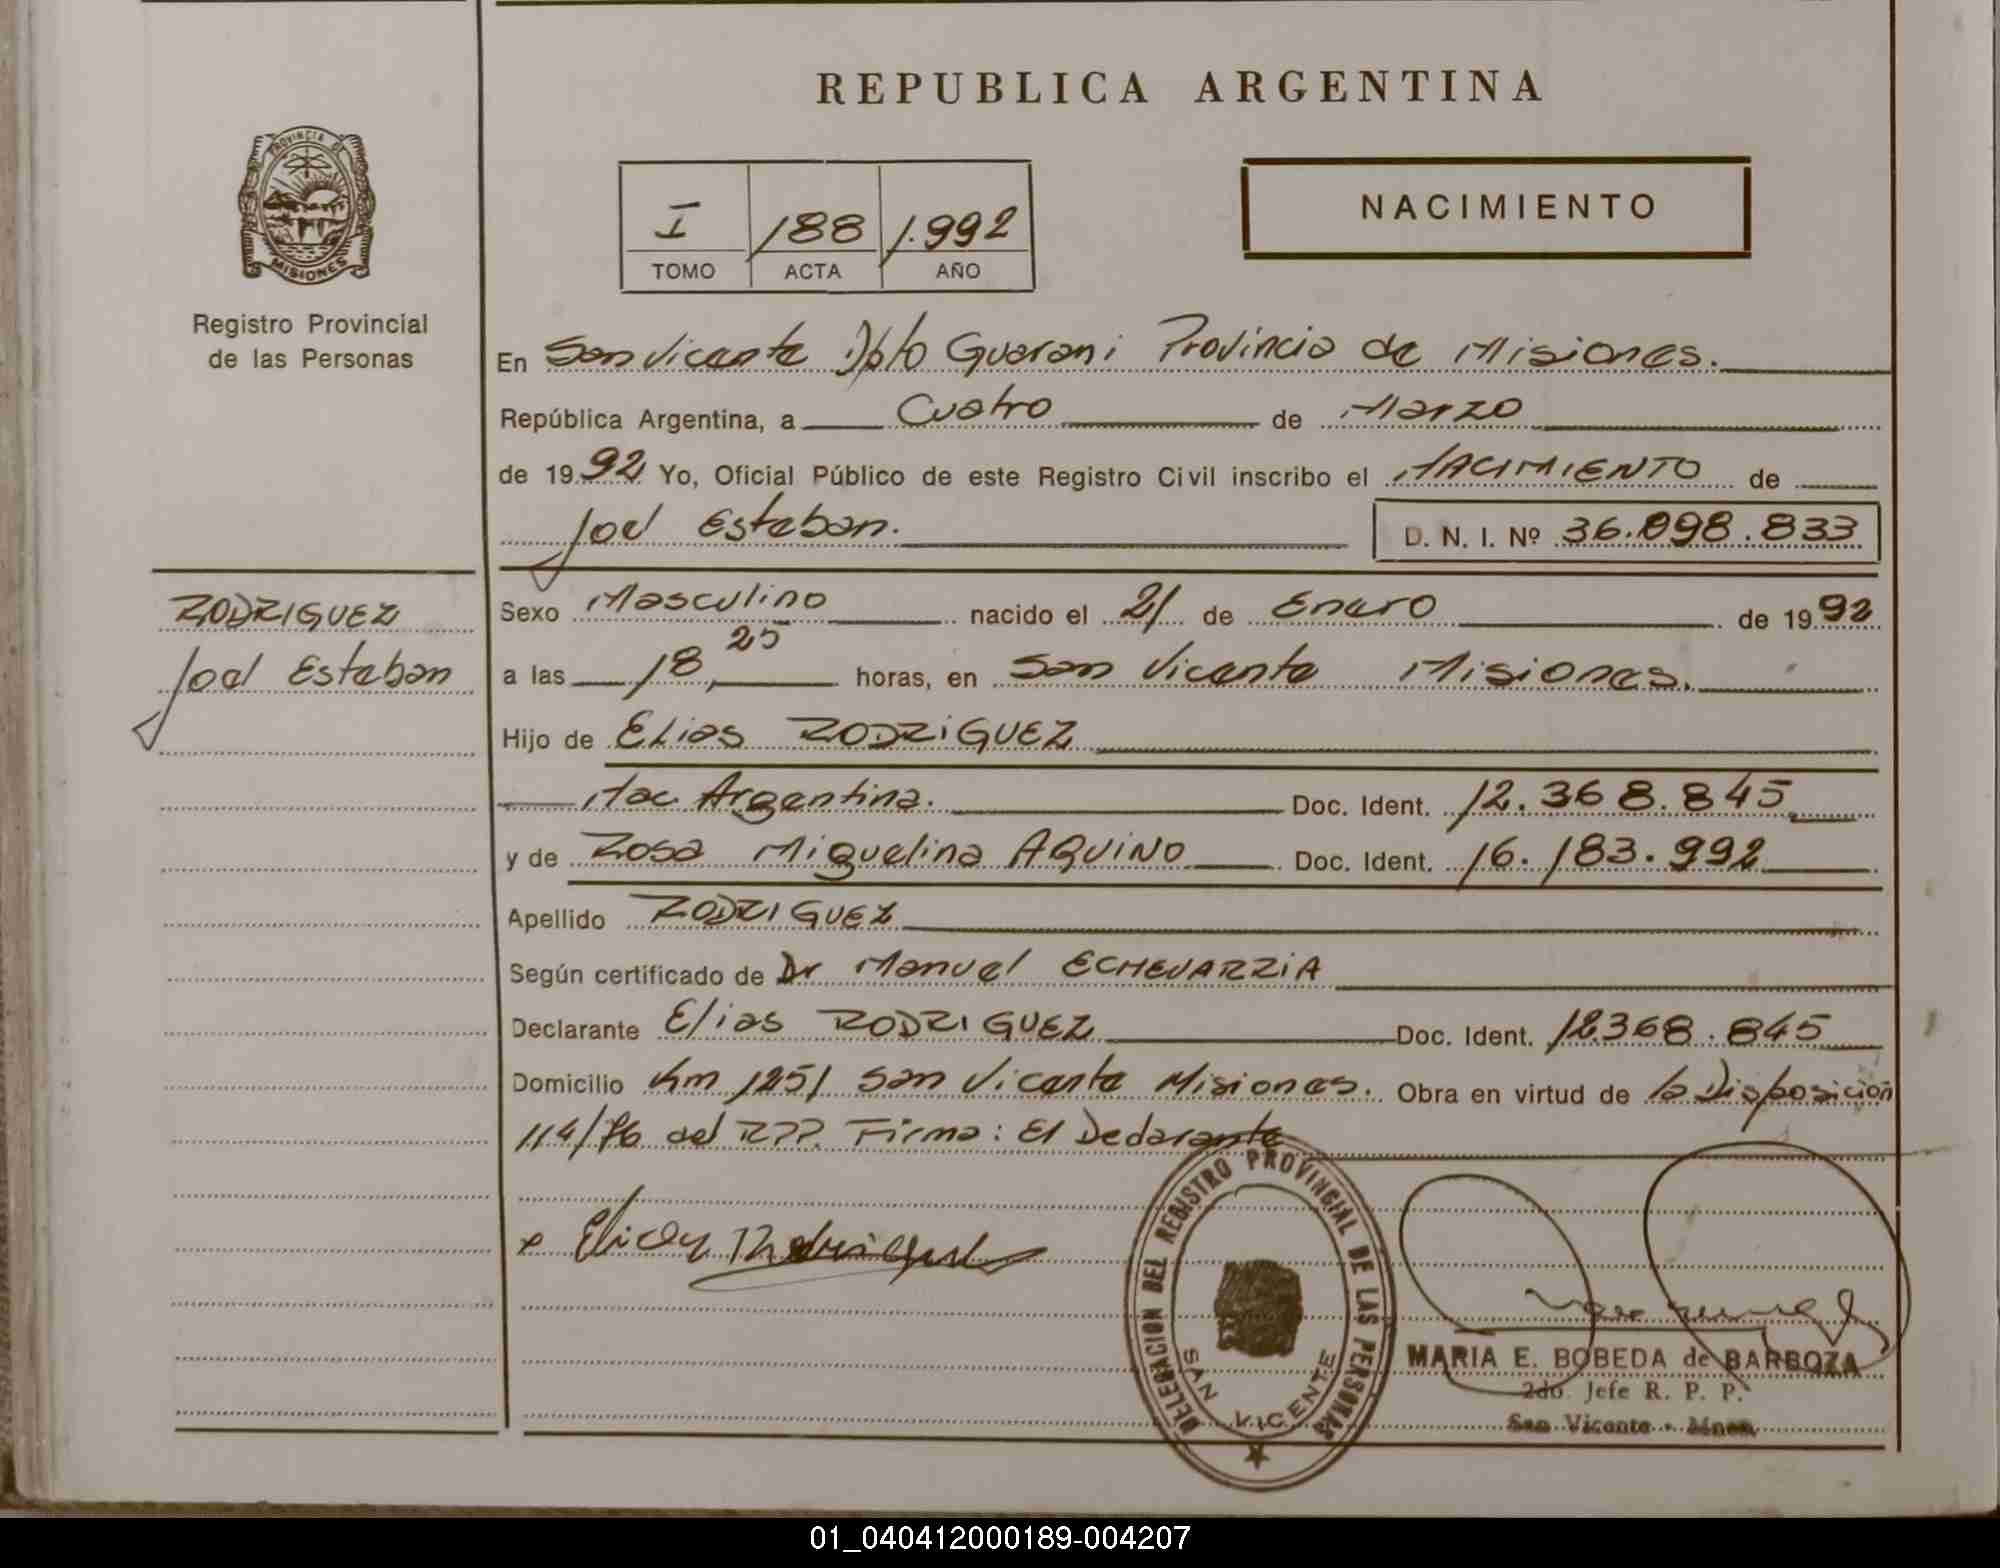 REPUBLICA ARGENTINA
PROVINCIA DE
MISIONES
Registro Provincial
de las Personas
I 188 1.992
TOMO ACTA AÑO
NACIMIENTO
En San Vicente Dpto Guarani Provincia de Misiones.
República Argentina, a Cuatro de Marzo
de 1992 Yo, Oficial Público de este Registro Civil inscribo el NACIMIENTO de
Joel Esteban. D. N. I. Nº 36.098.833
RODRIGUEZ
Joel Esteban
Sexo Masculino nacido el 21 de Enero de 1992
a las 18,25 horas, en San Vicente Misiones.
Hijo de Elias RODRiGUEZ
Nac Argentina. Doc. Ident. 12.368.845
y de Rosa Miguelina AQUINO Doc. Ident. 16.183.992
Apellido RODRIGUEZ
Según certificado de Dr Manuel ECHEVARRiA
Declarante Elias RODRIGUEZ Doc. Ident. 12.368.845
Domicilio Km 1251 San Vicente Misiones. Obra en virtud de la Disposición
114/86 del RPP. Firma: El Declarante
DELEGACION DEL REGISTRO PROVINCIAL DE LAS PERSONAS
SAN VICENTE
MARIA E. BOBEDA de BARBOZA
2do. Jefe R. P. P.
San Vicente - Mnes.
01_040412000189-004207